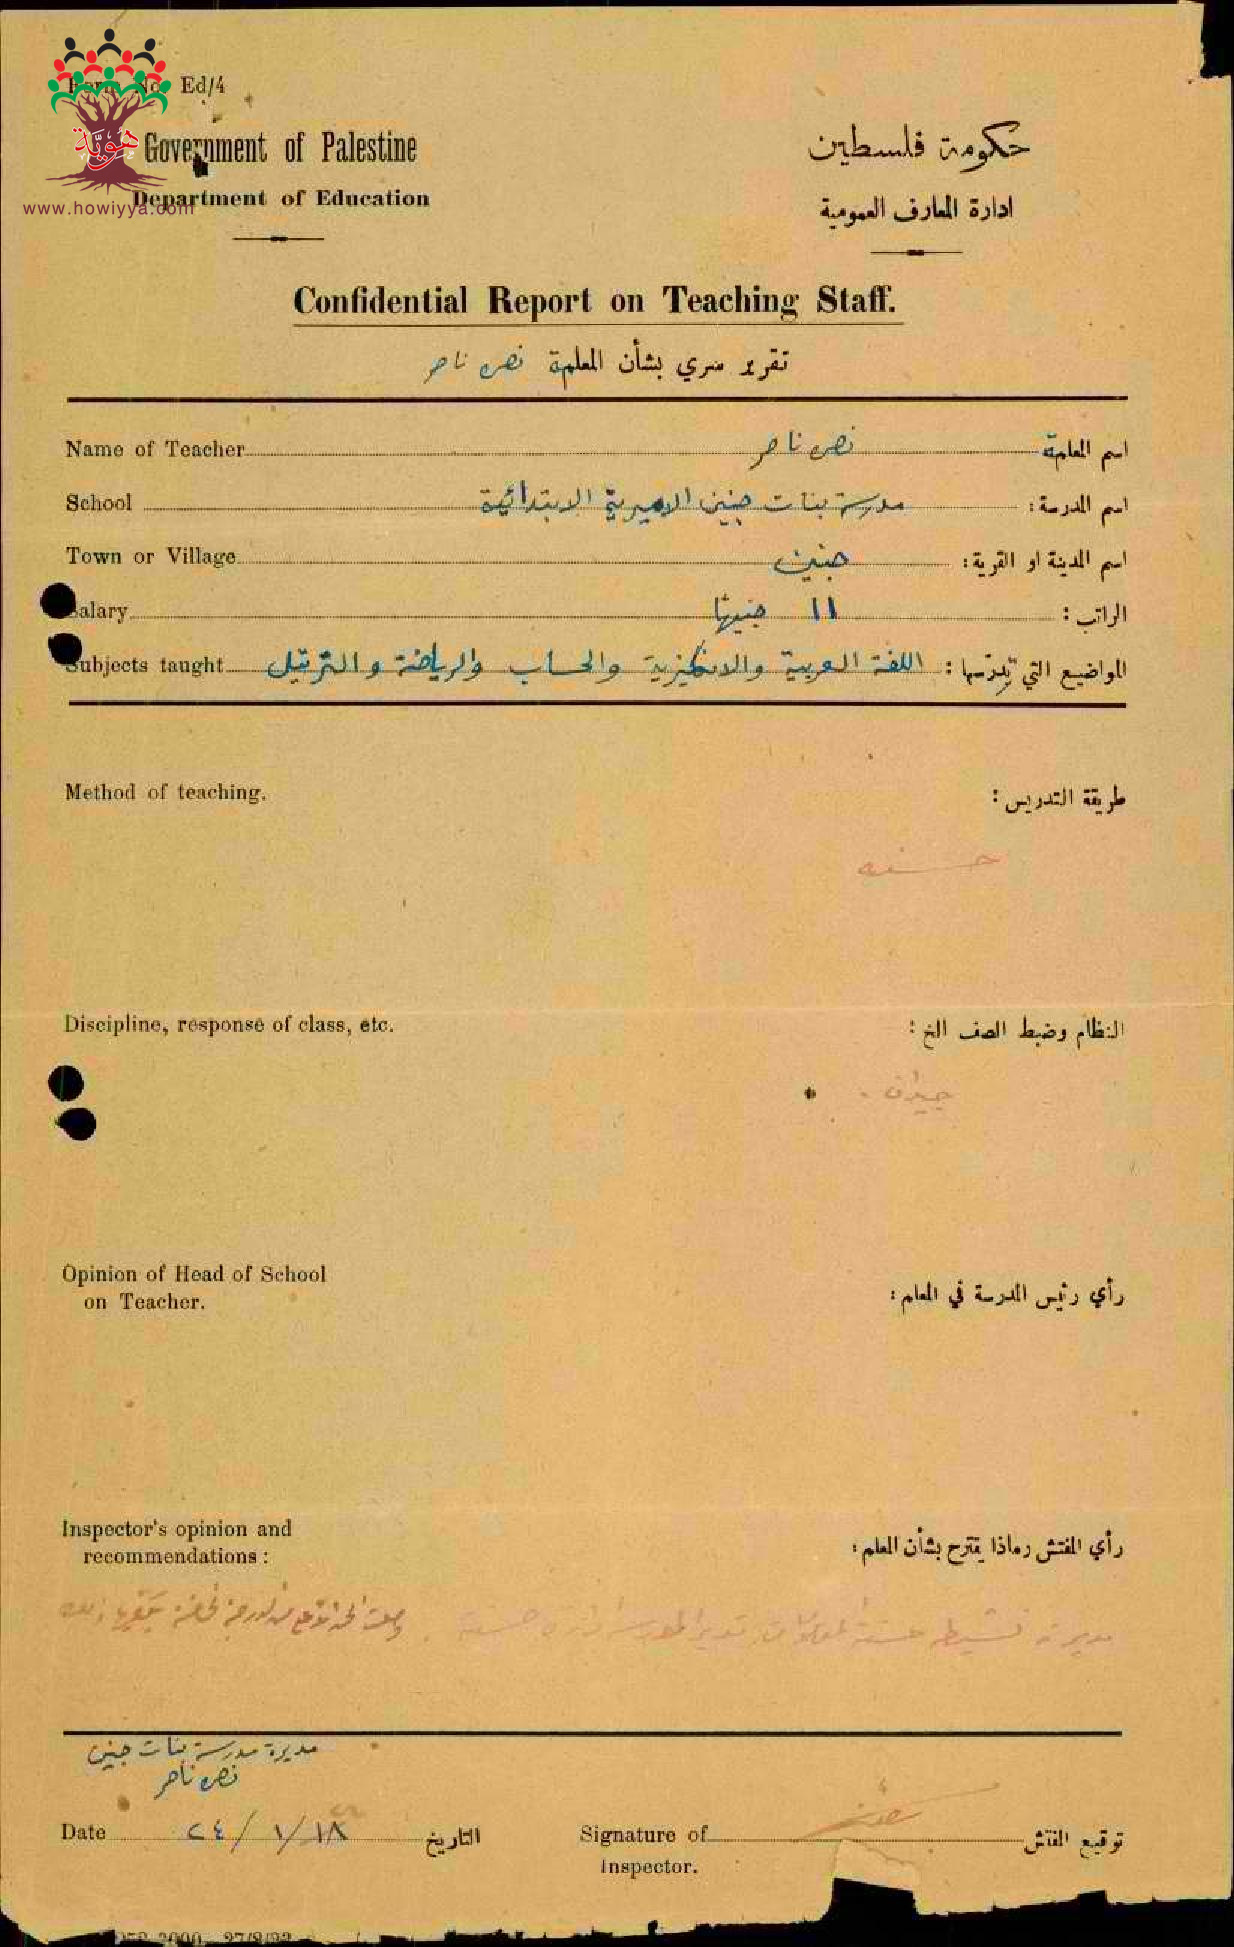 Form No. Ed/4
هَوِيَّة
www.howiyya.com
Government of Palestine
حكومة فلسطين
Department of Education
ادارة المعارف العمومية
Confidential Report on Teaching Staff.
تقرير سري بشأن المعلمة نصره ناصر
Name of Teacher نصره ناصر اسم المعلمة
School مدرسة بنات جنين الاميرية الابتدائية اسم المدرسة:
Town or Village جنين اسم المدينة او القرية:
Salary ١١ جنيهًا الراتب:
Subjects taught اللغة العربية والانكليزية والحساب والرياضة والترتيل المواضيع التي تدرّسها:
Method of teaching. طريقة التدريس:
حسنه
Discipline, response of class, etc. النظام وضبط الصف الخ:
جيدان.
Opinion of Head of School
on Teacher.
رأي رئيس المدرسة في المعلم:
Inspector's opinion and
recommendations:
رأي المفتش وماذا يقترح بشأن المعلم:
مديرة نشيطه حسنة تدير المدرسة ادارة حسنة.
مديرة مدرسة بنات جنين
نصره ناصر
Date ٢٤/١/١٨ التاريخ
Signature of توقيع المفتش
Inspector.
2000 27/8/23